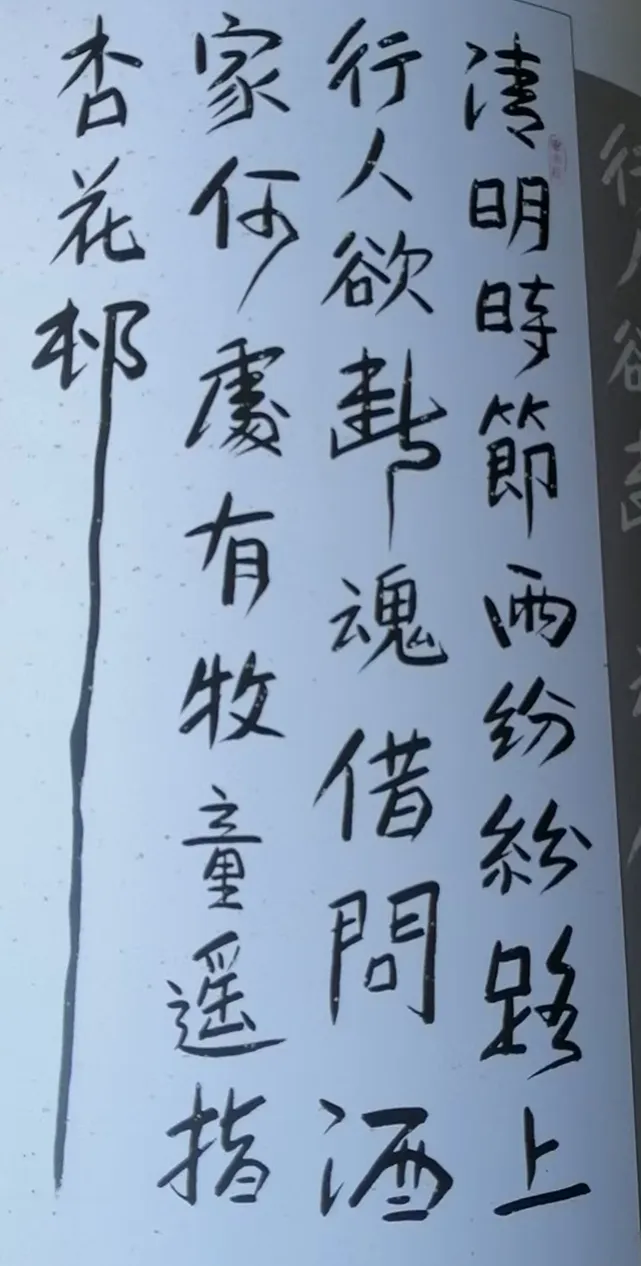 清明時節雨紛紛路上
行人欲斷魂借問酒
家何處有牧童遥指
杏花邨